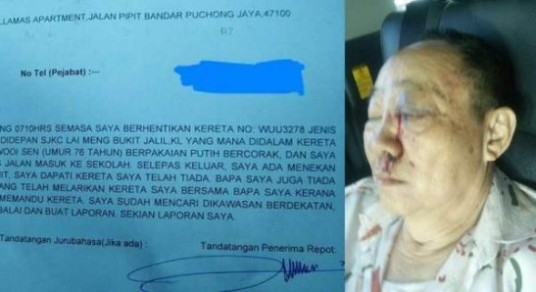 LLAMAS APARTMENT,JALAN PIPIT BANDAR PUCHONG JAYA,47100
No Tel (Pejabat) :---
NG 0710HRS SEMASA SAYA BERHENTIKAN KERETA NO. WUU3278 JENIS
DIDEPAN SJKC LAI MENG BUKIT JALIL,KL YANG MANA DIDALAM KERETA
WOOI SEN (UMUR 76 TAHUN) BERPAKAIAN PUTIH BERCORAK, DAN SAYA
S JALAN MASUK KE SEKOLAH. SELEPAS KELUAR, SAYA ADA MENEKAN
IT, SAYA DAPATI KERETA SAYA TELAH TIADA. BAPA SAYA JUGA TIADA
ANG TELAH MELARIKAN KERETA SAYA BERSAMA BAPA SAYA KERANA
MEMANDU KERETA. SAYA SUDAH MENCARI DIKAWASAN BERDEKATAN,
BALAI DAN BUAT LAPORAN. SEKIAN LAPORAN SAYA.
Tandatangan Jurubahasa(Jika ada) : Tandatangan Penerima Repot: